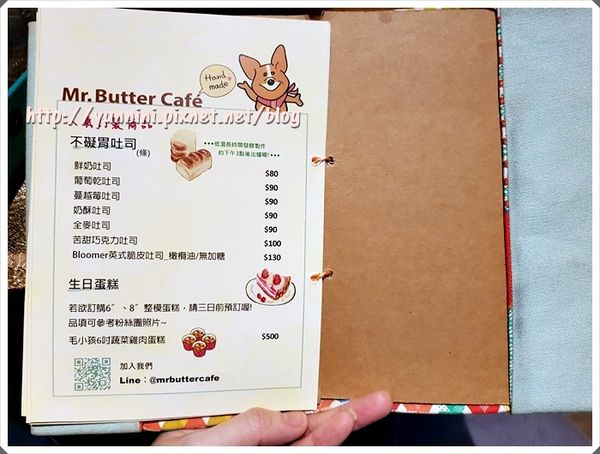 Hand made
Mr. Butter Café
http://yunnini.pixnet.net/blog
不礙胃吐司
(條)
•••低溫長時間發酵製作
約下午3點後出爐喔!•••
鮮奶吐司 $80
葡萄乾吐司 $90
蔓越莓吐司 $90
奶酥吐司 $90
全麥吐司 $90
苦甜巧克力吐司 $100
Bloomer英式脆皮吐司_橄欖油/無加糖 $130
生日蛋糕
若欲訂購6"、8"整模蛋糕,請三日前預訂喔!
品項可參考粉絲團照片~
毛小孩6吋蔬菜雞肉蛋糕 $500
加入我們
Line:@mrbuttercafe